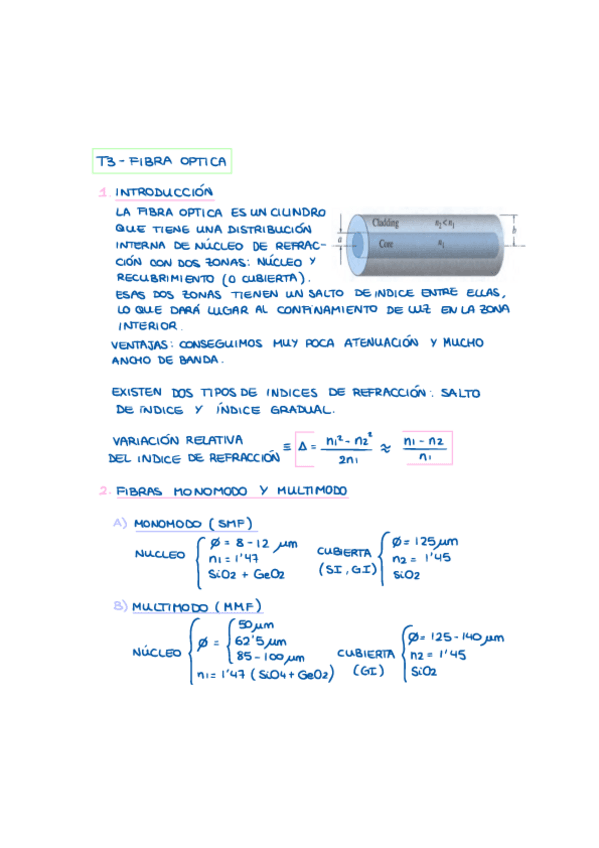 T3 - FIBRA OPTICA
1. INTRODUCCIÓN
LA FIBRA OPTICA ES UN CILINDRO
QUE TIENE UNA DISTRIBUCIÓN
INTERNA DE NÚCLEO DE REFRAC-
CIÓN CON DOS ZONAS: NÚCLEO Y
RECUBRIMIENTO (O CUBIERTA).
Cladding n₂<n₁
Core n₁
a
b
ESAS DOS ZONAS TIENEN UN SALTO DE INDICE ENTRE ELLAS,
LO QUE DARÁ LUGAR AL CONFINAMIENTO DE LUZ EN LA ZONA
INTERIOR.
VENTAJAS: CONSEGUIMOS MUY POCA ATENUACIÓN Y MUCHO
ANCHO DE BANDA.
EXISTEN DOS TIPOS DE INDICES DE REFRACCIÓN: SALTO
DE ÍNDICE Y ÍNDICE GRADUAL.
VARIACIÓN RELATIVA
DEL INDICE DE REFRACCIÓN ≡ Δ = n1² - n2² / 2n1 ≈ n1 - n2 / n1
2. FIBRAS MONOMODO Y MULTIMODO
A) MONOMODO (SMF)
NUCLEO { Ø = 8 - 12 μm
n1 = 1'47
SiO2 + GeO2
CUBIERTA (SI, GI) { Ø = 125 μm
n2 = 1'45
SiO2
B) MULTIMODO (MMF)
NÚCLEO { Ø = { 50 μm
62'5 μm
85 - 100 μm
n1 = 1'47 (SiO4 + GeO2)
CUBIERTA (GI) { Ø = 125 - 140 μm
n2 = 1'45
SiO2